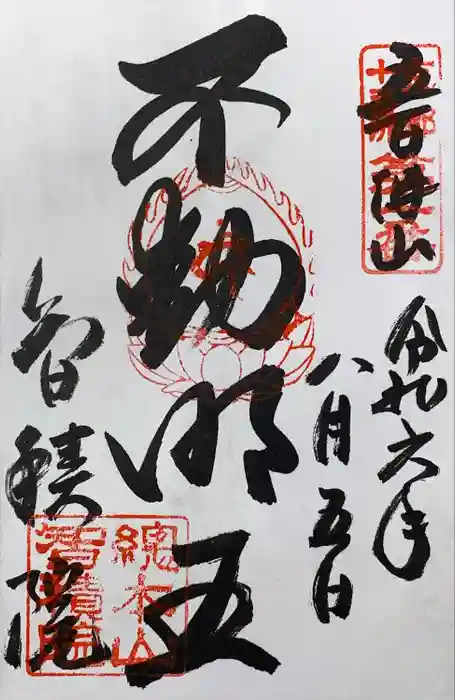 五百佛山
令和六年
八月五日
不動明王
智積院
總本山
智積院